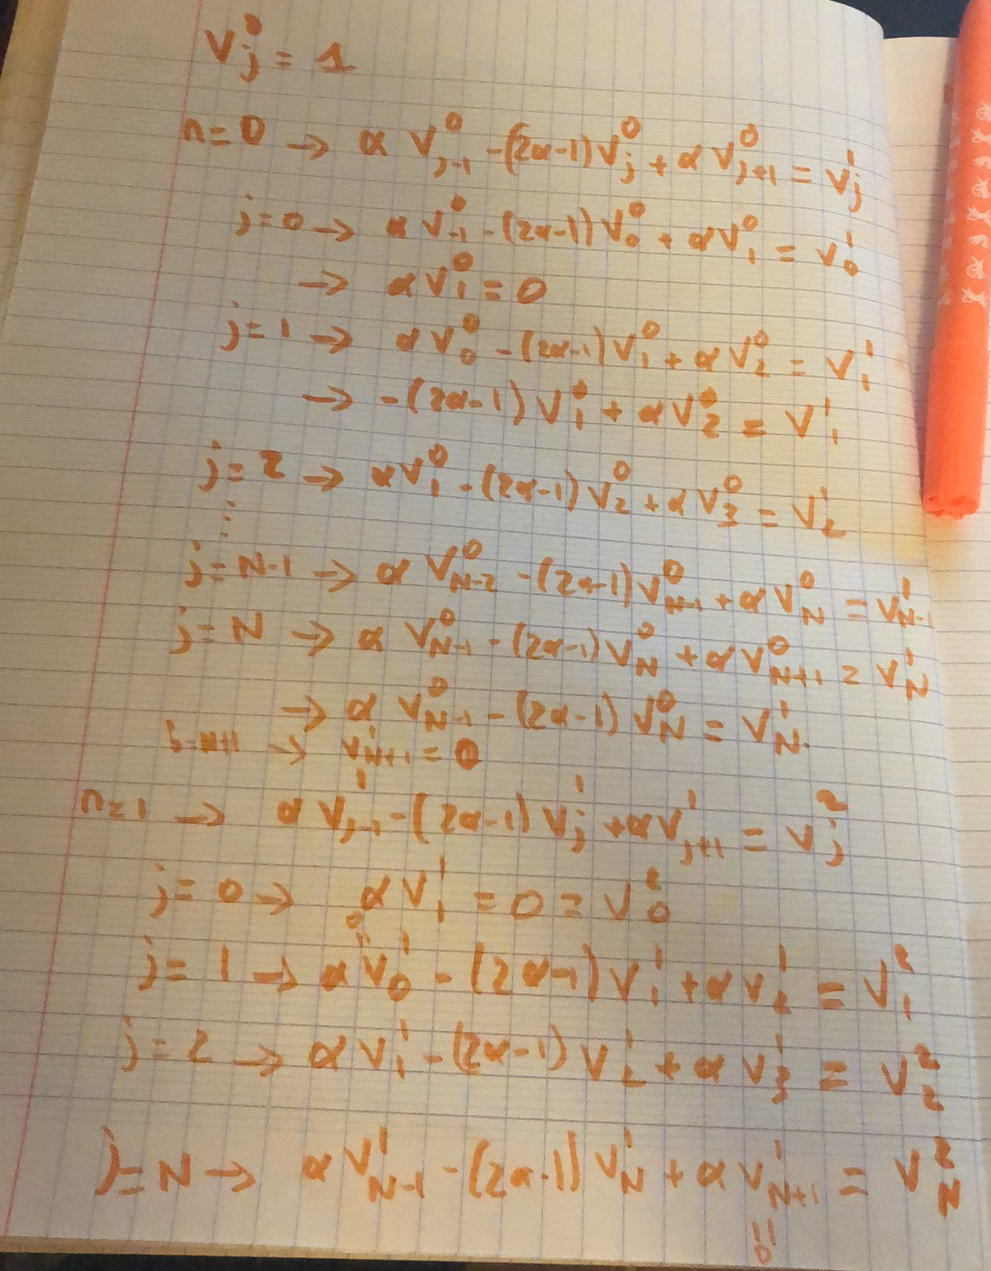 V_j^0 = 1
n=0 → α V_{j-1}^0 - (2α-1) V_j^0 + α V_{j+1}^0 = V_j^1
j=0 → α V_{-1}^0 - (2α-1) V_0^0 + α V_1^0 = V_0^1
→ α V_1^0 = 0
j=1 → α V_0^0 - (2α-1) V_1^0 + α V_2^0 = V_1^1
→ -(2α-1) V_1^0 + α V_2^0 = V_1^1
j=2 → α V_1^0 - (2α-1) V_2^0 + α V_3^0 = V_2^1
⋮
j=N-1 → α V_{N-2}^0 - (2α-1) V_{N-1}^0 + α V_N^0 = V_{N-1}^1
j=N → α V_{N-1}^0 - (2α-1) V_N^0 + α V_{N+1}^0 = V_N^1
→ α V_{N-1}^0 - (2α-1) V_N^0 = V_N^1.
→ V_{N+1}^1 = 0
n=1 → α V_{j-1}^1 - (2α-1) V_j^1 + α V_{j+1}^1 = V_j^2
j=0 → α V_1^1 = 0 = V_0^2
0
"
j=1 → α V_0^1 - (2α-1) V_1^1 + α V_2^1 = V_1^2
j=2 → α V_1^1 - (2α-1) V_2^1 + α V_3^1 = V_2^2
j=N → α V_{N-1}^1 - (2α-1) V_N^1 + α V_{N+1}^1 = V_N^2
"
0